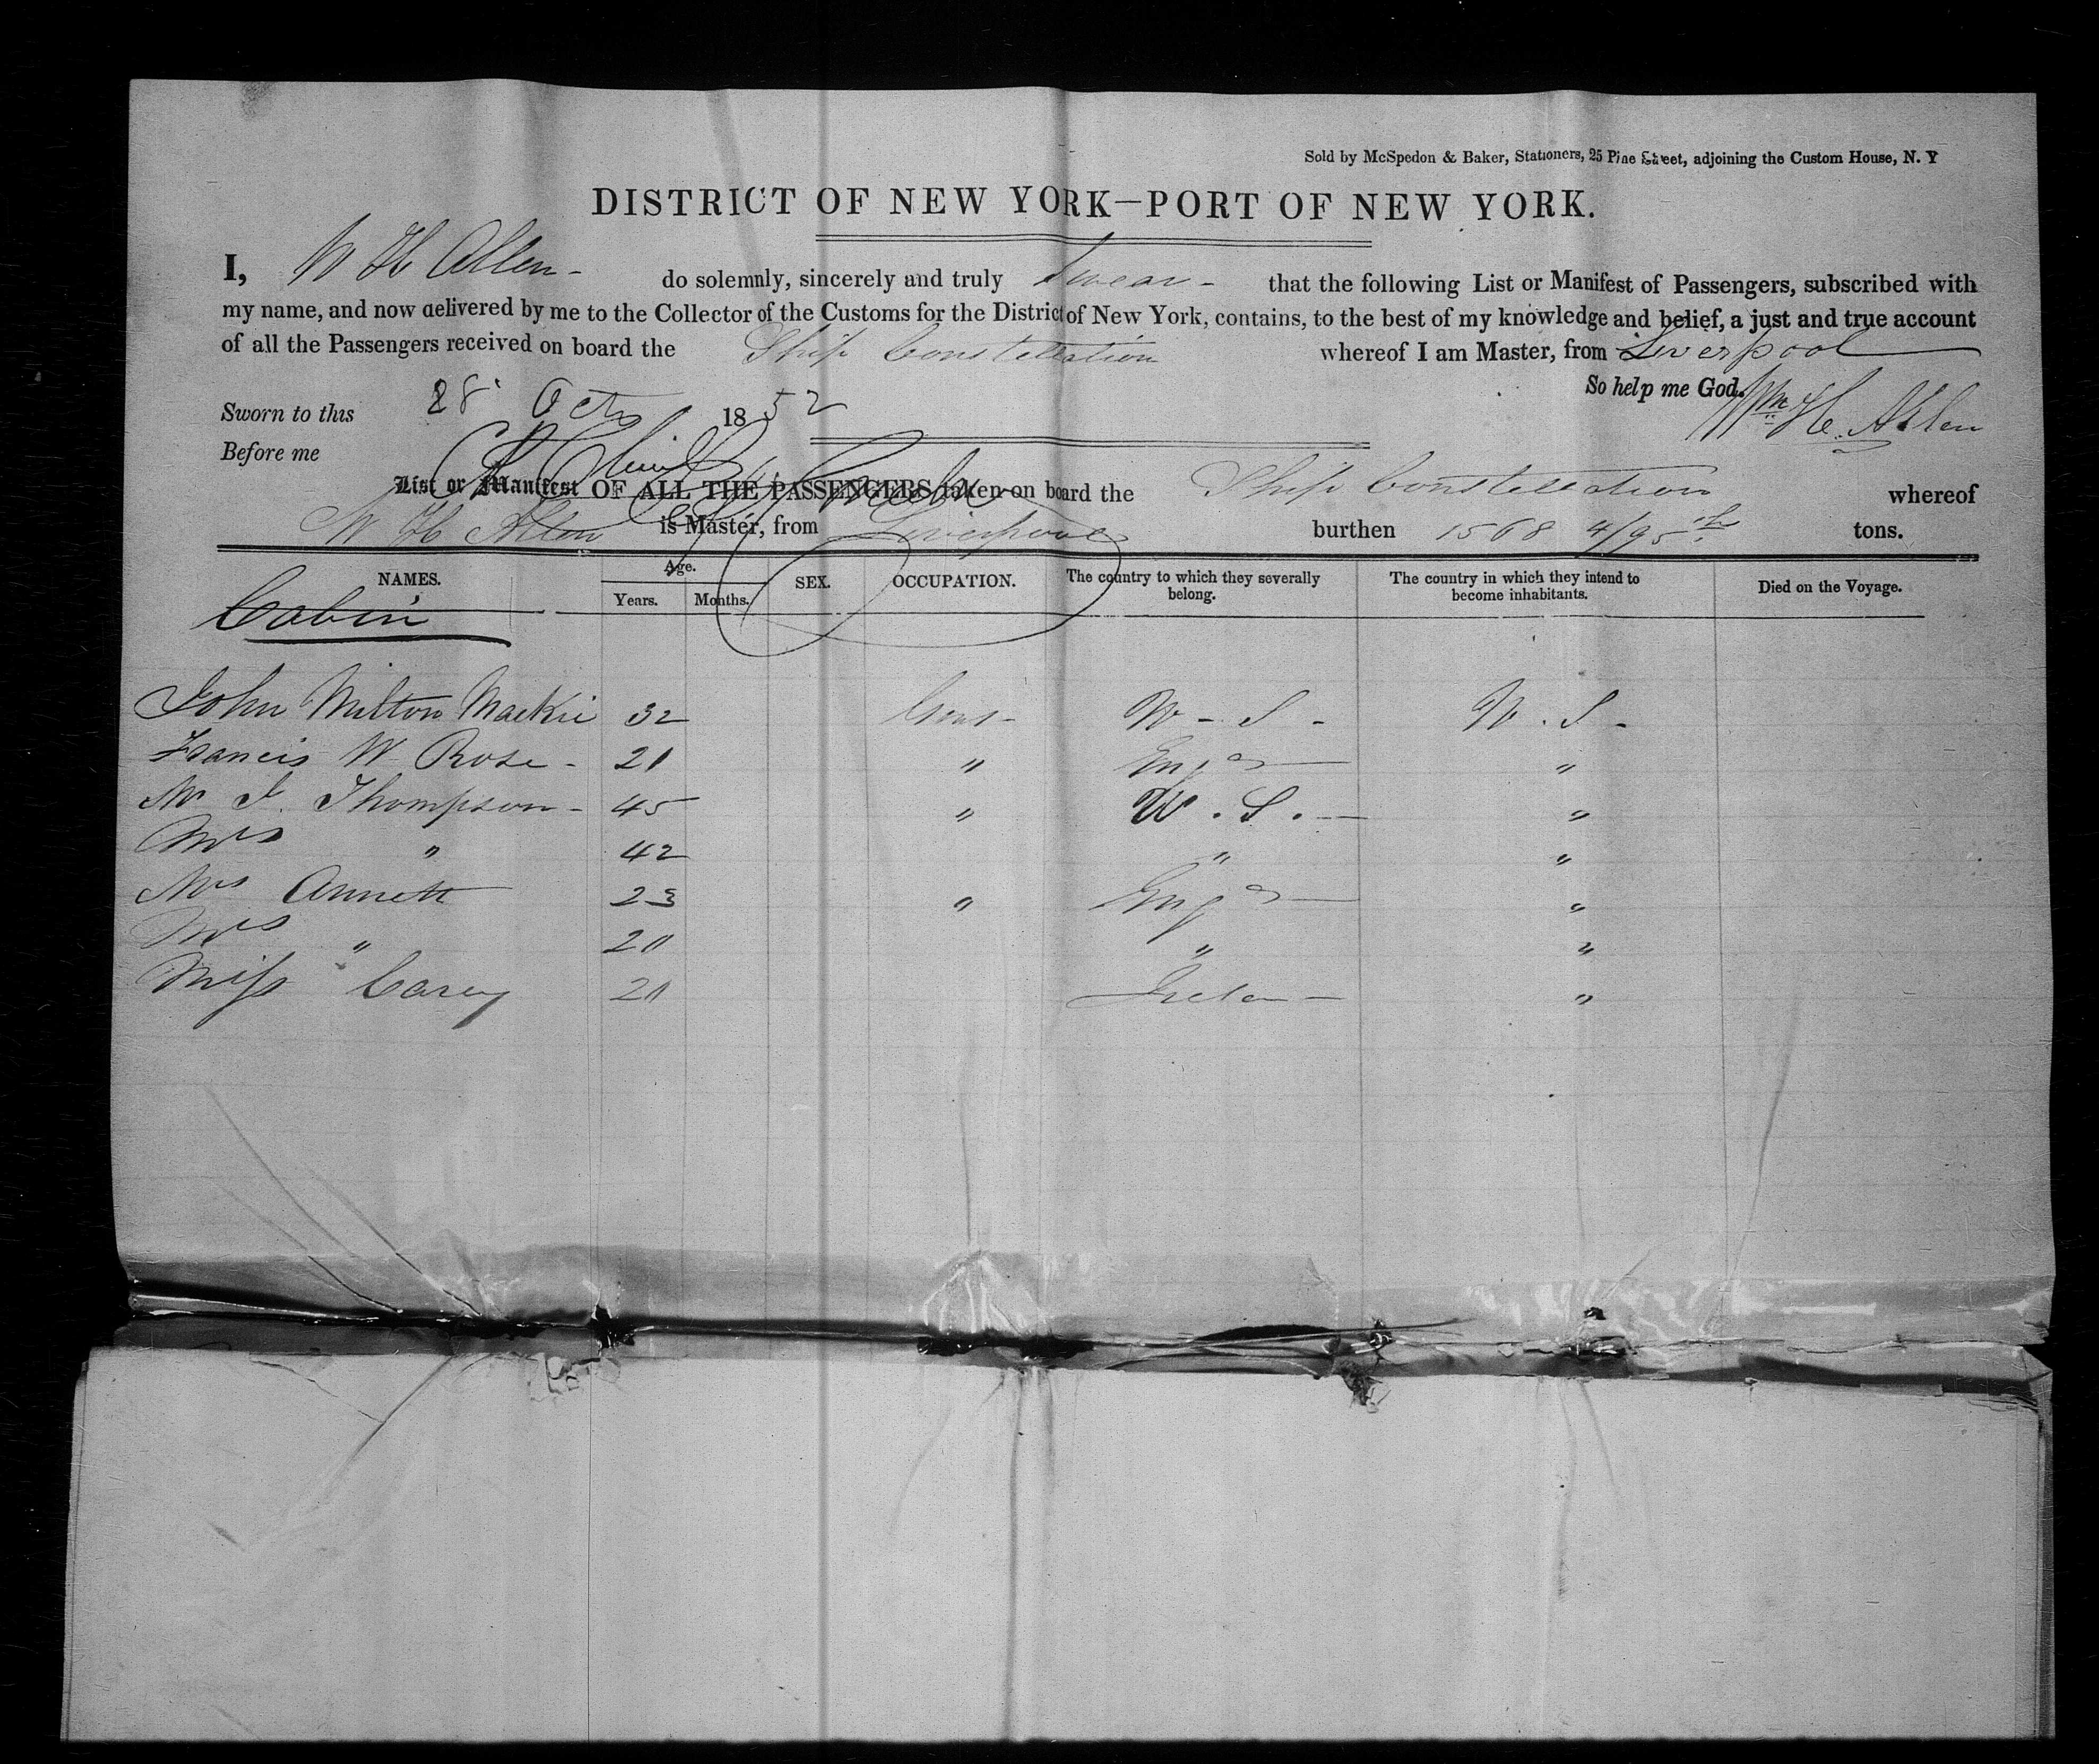 Sold by McSpedon & Baker, Stationers, 25 Pine Street, adjoining the Custom House, N. Y
DISTRICT OF NEW YORK—PORT OF NEW YORK.
I, W H Allen - do solemnly, sincerely and truly swear - that the following List or Manifest of Passengers, subscribed with
my name, and now delivered by me to the Collector of the Customs for the District of New York, contains, to the best of my knowledge and belief, a just and true account
of all the Passengers received on board the Ship Constellation whereof I am Master, from Liverpool
So help me God. Wm H. Allen
Sworn to this 28 Octo 1852
Before me
List or Manifest OF ALL THE PASSENGERS taken on board the Ship Constellation whereof
W H Allen is Master, from Liverpool burthen 1568 4/95ths tons.
NAMES. Age. Years. Months. SEX. OCCUPATION. The country to which they severally belong. The country in which they intend to become inhabitants. Died on the Voyage.
Cabin
John Milton Mackie 32 Gent - U - S - U. S -
Francis W Rose - 21 " Engd "
Mr J. Thompson - 45 " U. S. - "
Mrs " 42 " "
Mr Annett 23 " Engd "
Mrs " 20 " "
Miss " Carey 20 Irelan - "